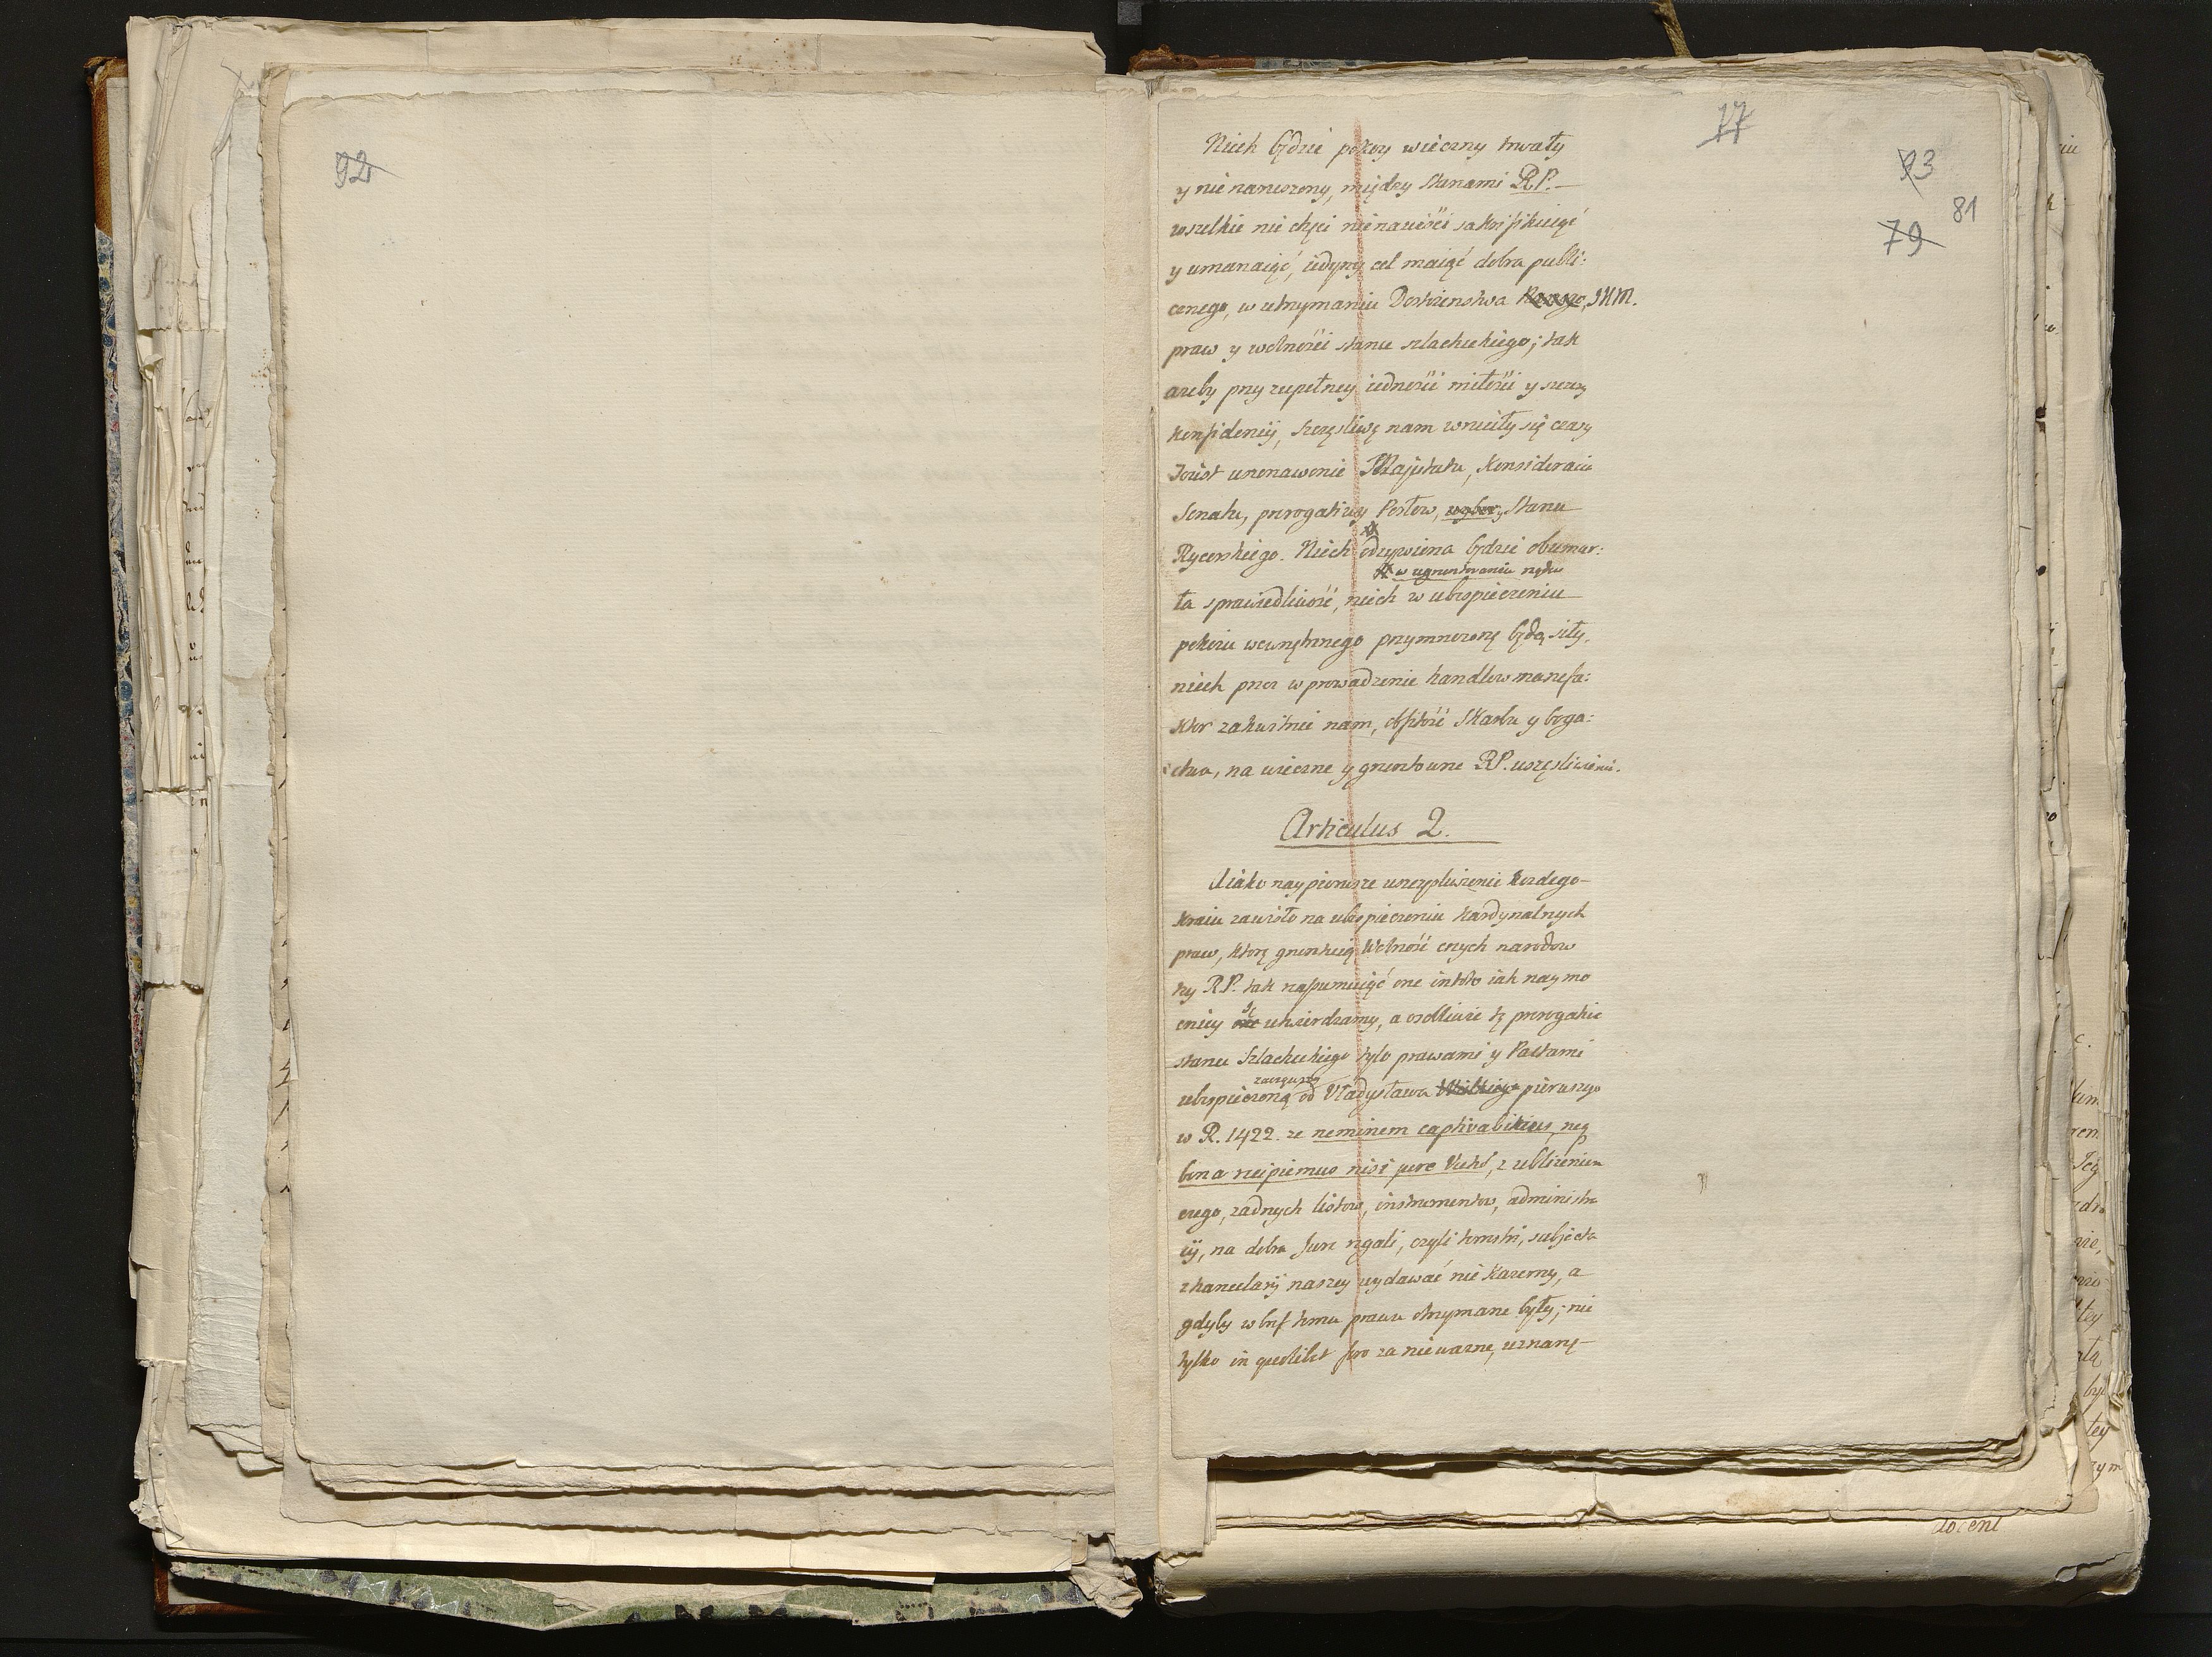 92
77
93
81
79
Niech będzie pokoy wieczny trwały
y nie naruszony, między Stanami RP.
wszelkie nie chęci nienawiści sakryfikuiąc
y umarzaiąc, iedyny cel maiąc dobra publi:
cznego, w utrzymaniu Dostoienstwa JKM.
praw y wolności stanu szlacheckiego; tak
azeby przy zupełney iedności miłości y
konfidencij, szczęsliwę nam wrociły się czasy
Iouist Majestatu, Konsideracia
Senatu, prerogatiwy Posłow, wybory Stanu
Rycerskiego. Niech odzywiona będzie obumar:
# w ugruntowaniu rządu
ła sprawiedliwość, niech w ubespieczeniu
pokoiu wewnętrznego przymnozonę będą siły,
niech przez wprowadzenie handlow manufa:
ktor zakwitnie nam, obfitość Skarbu y boga:
ctwa, na wieczne y gruntowne RP. uszęsliwienie.
Articulus 2.
Aiako naypierwsze uszczęsliwienie kozdego
kraiu zawisło na ubespieczeniu kardynalnych
praw, ktorę gruntuią Wolność cnych narodow
tey RP. tak reassumuiąc one in toto iak naymo
cniey utwierdzamy, a osobliwie tę prerogatiwe
stanu Szlacheckiego tylo prawami y Pactami
zacząwszy
ubespieczoną od Vładysława pierwszego
w R. 1422. ze neminem captivabimus, neq
bona recipiemus nisi jure Victo, z ubliżeniem
czego, zadnych listow, instrumentow, administra
cij, na dobra Jure regali, czyli ziemski, subjecta
z kancelarij naszey wydawać nie kazemy, a
gdyby wbrew temu prawu otrzymane były; nie
tylko in quolibet foro za niewazne, uznanę
docent